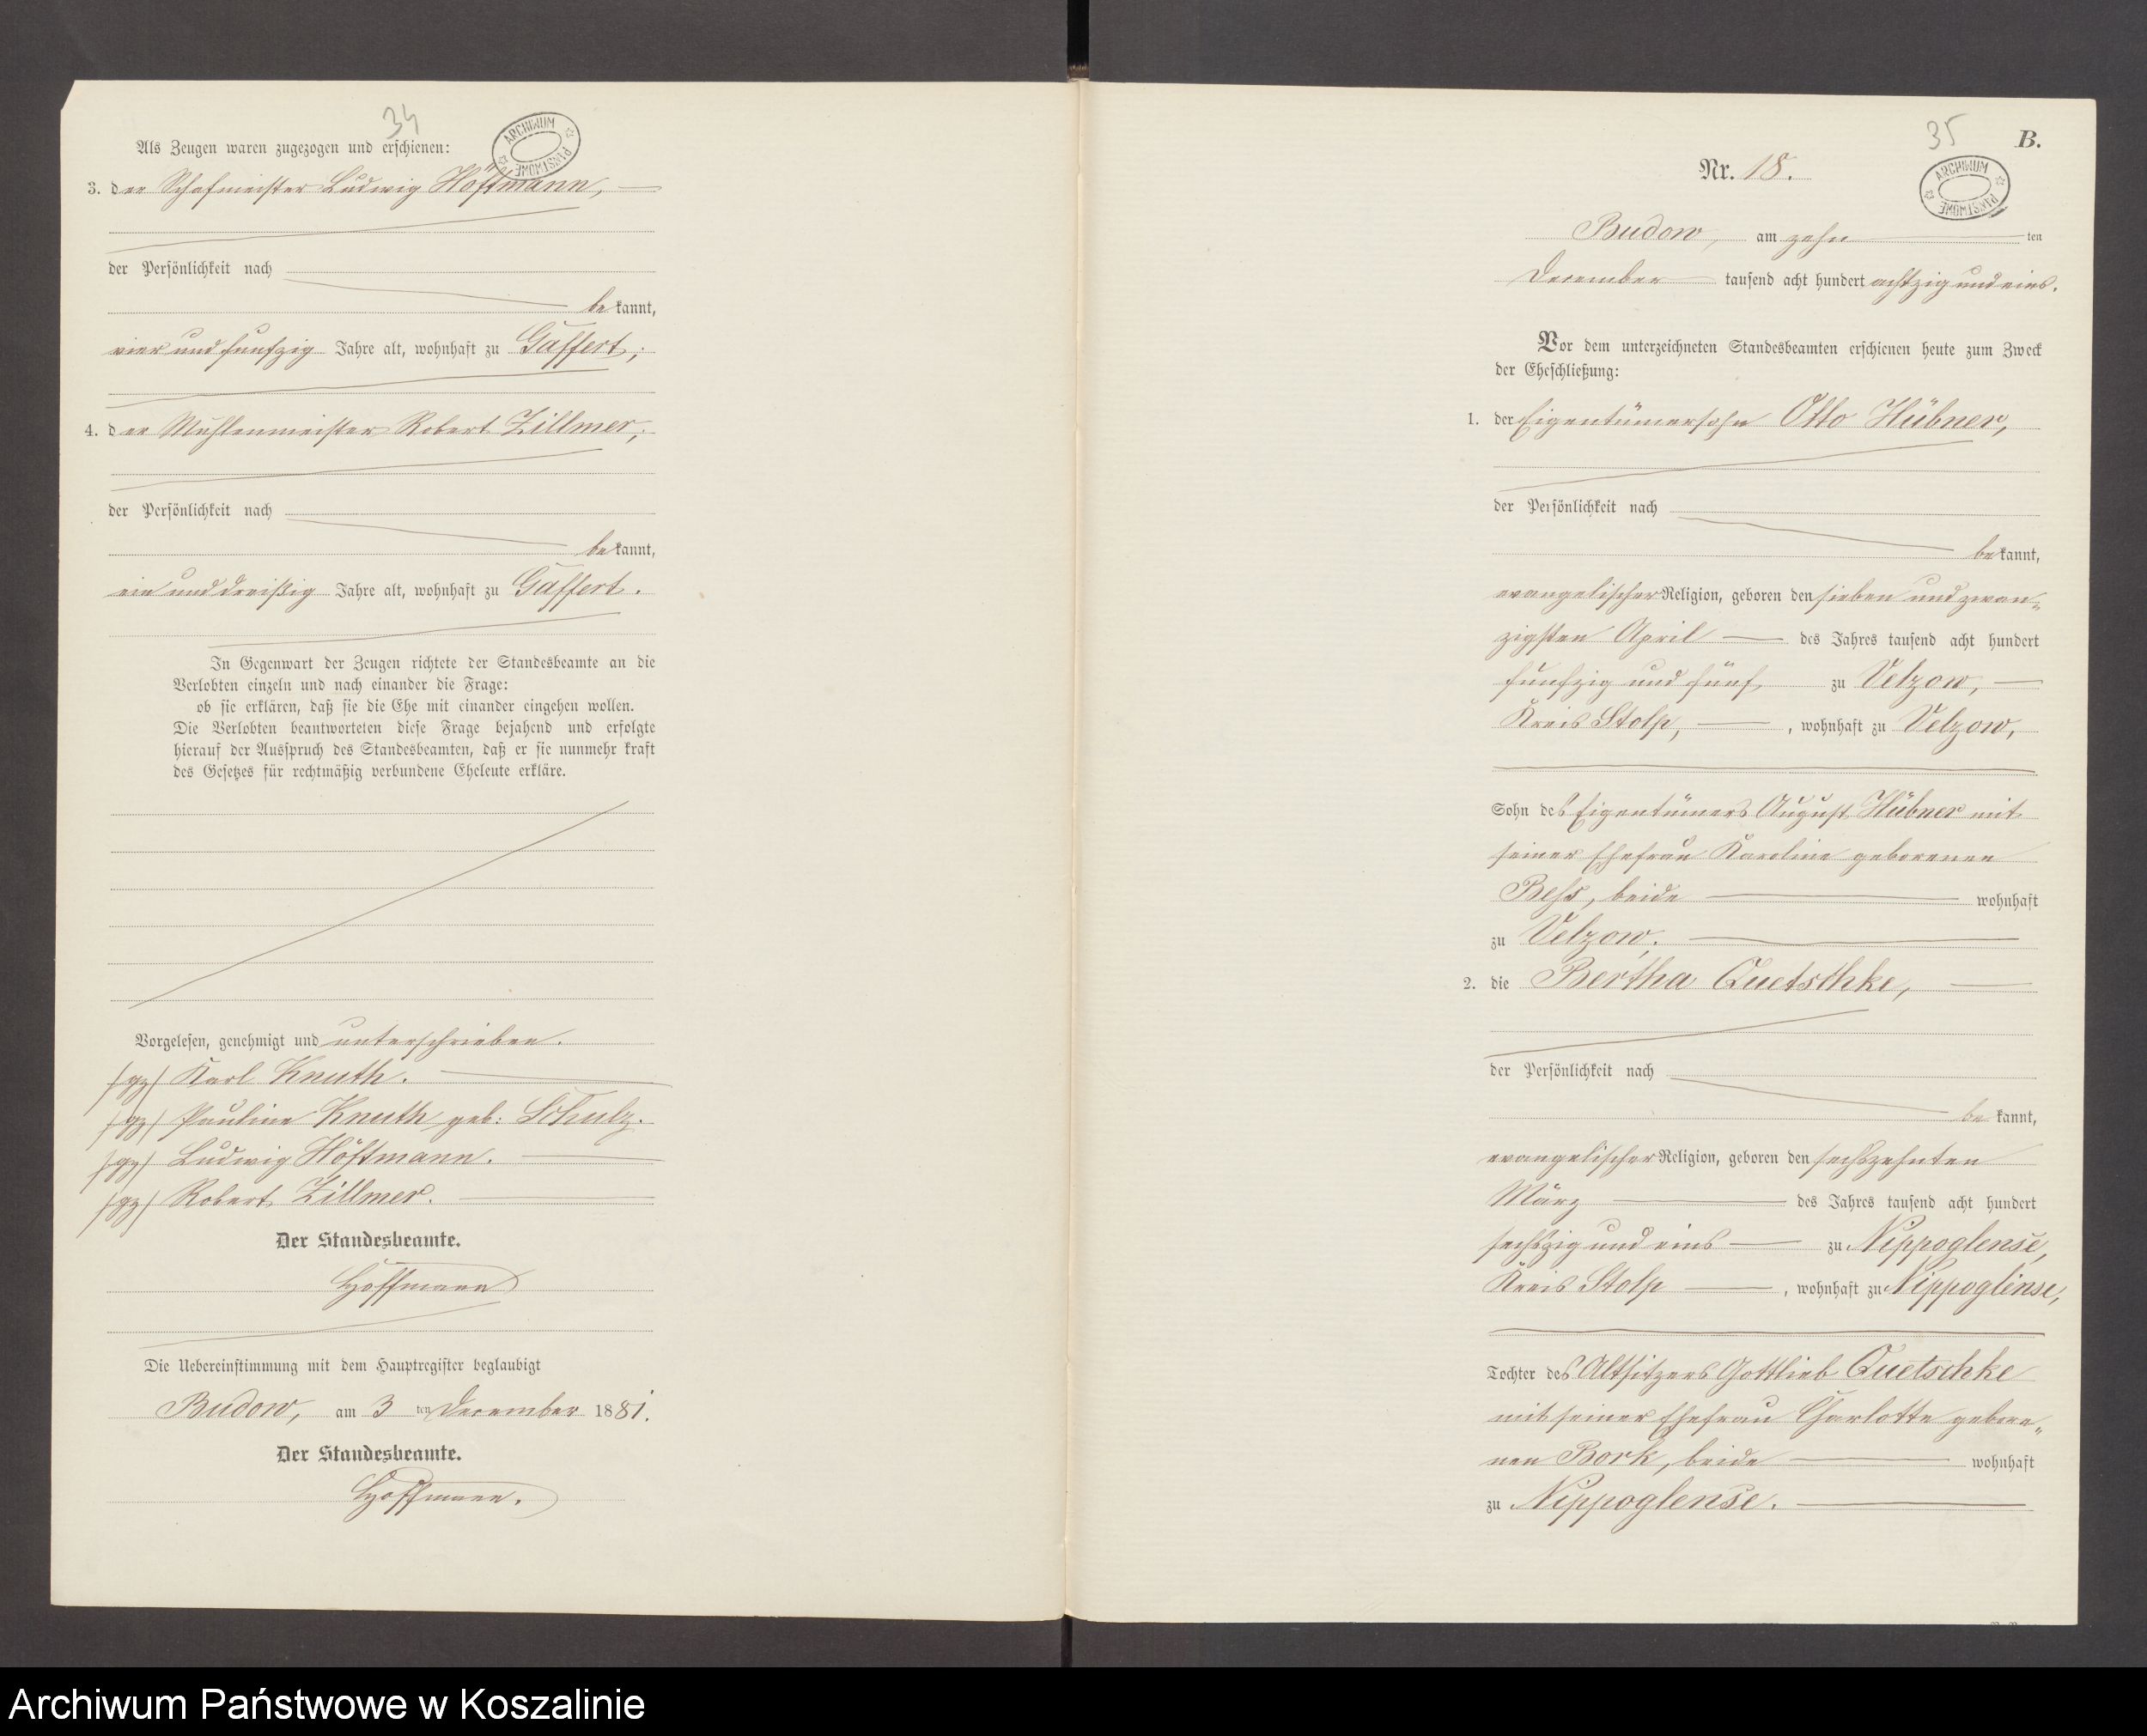 34
ARCHIWUM PAŃSTWOWE
Als Zeugen waren zugezogen und erschienen:
3. der Schafmeister Ludwig Höftmann,
der Persönlichkeit nach
bekannt,
vier und funfzig Jahre alt, wohnhaft zu Gaffert;
4. der Mühlenmeister Robert Zillmer,
der Persönlichkeit nach
bekannt,
ein und dreißig Jahre alt, wohnhaft zu Gaffert.
In Gegenwart der Zeugen richtete der Standesbeamte an die
Verlobten einzeln und nach einander die Frage:
ob sie erklären, daß sie die Ehe mit einander eingehen wollen.
Die Verlobten beantworteten diese Frage bejahend und erfolgte
hierauf der Ausspruch des Standesbeamten, daß er sie nunmehr kraft
des Gesetzes für rechtmäßig verbundene Eheleute erkläre.
Vorgelesen, genehmigt und unterschrieben.
(gz) Karl Knuth.
(gz) Pauline Knuth geb: Schulz.
(gz) Ludwig Höftmann.
(gz) Robert Zillmer.
Der Standesbeamte.
Hoffmann
Die Uebereinstimmung mit dem Hauptregister beglaubigt
Budow, am 3 ten December 1881.
Der Standesbeamte.
Hoffmann.
35
B.
ARCHIWUM PAŃSTWOWE
Nr. 18.
Budow, am zehn ten
December tausend acht hundert achtzig und eins.
Vor dem unterzeichneten Standesbeamten erschienen heute zum Zweck
der Eheschließung:
1. der Eigentümersohn Otto Hübner,
der Persönlichkeit nach
bekannt,
evangelischer Religion, geboren den sieben und zwan-
zigsten April des Jahres tausend acht hundert
funfzig und fünf zu Velzow,
Kreis Stolp, , wohnhaft zu Velzow,
Sohn des Eigentümers August Hübner mit
seiner Ehefrau Karoline geborenen
Behs, beide wohnhaft
zu Velzow.
2. die Bertha Quetschke,
der Persönlichkeit nach
bekannt,
evangelischer Religion, geboren den sechszehnten
März des Jahres tausend acht hundert
sechszig und eins zu Nippoglense,
Kreis Stolp , wohnhaft zu Nippoglense,
Tochter des Altsitzers Gottlieb Quetschke
mit seiner Ehefrau Charlotte gebore-
nen Bork, beide wohnhaft
zu Nippoglense.
Archiwum Państwowe w Koszalinie